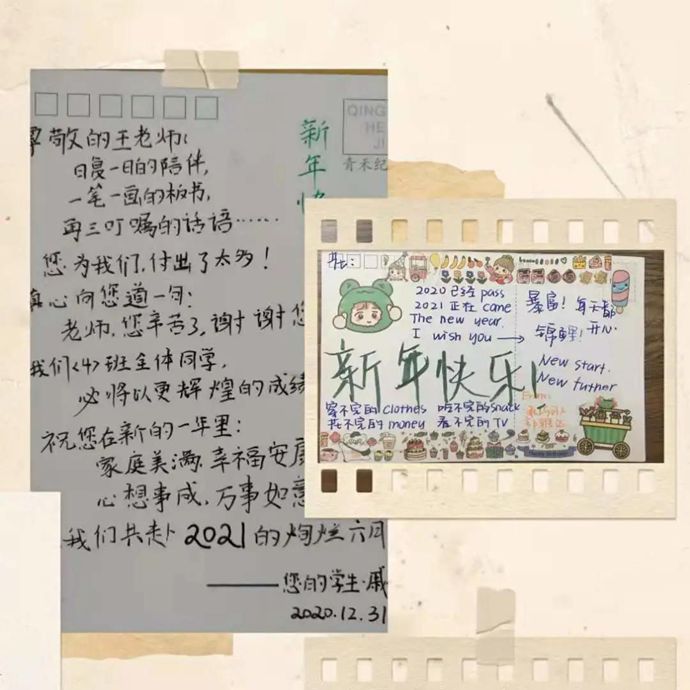 新年快
QING
HE
JI
青禾纪
尊敬的王老师:
日复一日的陪伴,
一笔一画的板书,
再三叮嘱的话语……
您为我们,付出了太多!
真心向您道一句:
老师,您辛苦了,谢谢您
我们<4>班全体同学,
必将以更辉煌的成绩
祝您在新的一年里:
家庭美满,幸福安康
心想事成,万事如意
我们共赴 2021 的炯烂六月
——您的学生·戚
2020.12.31
2020 已经 pass
2021 正在 came
The new year.
I wish you →
暴富! 每天都
开心
锦鲤!
New start.
New futher
新年快乐!
穿不完的 clothes 吃不完的 snack
花不完的 money 看不完的 TV
From: